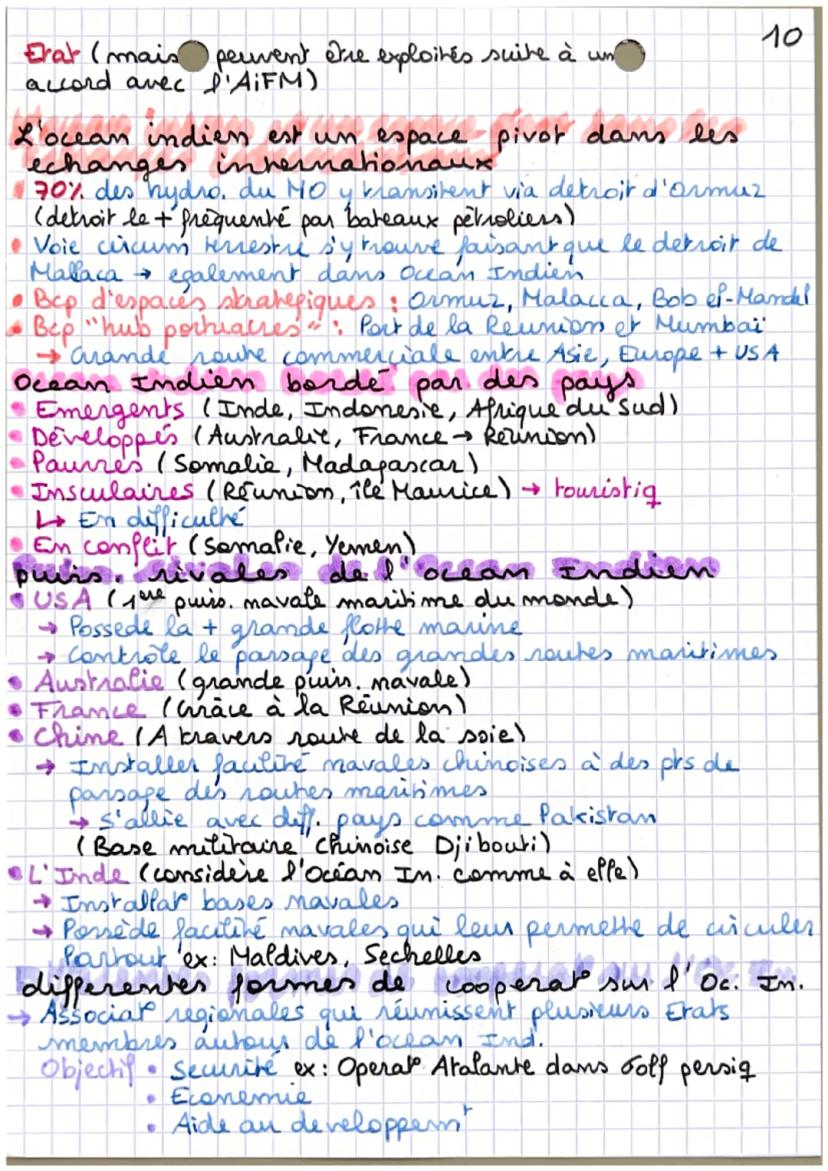 10
Etat (mais peuvent être exploités suite à un
accord avec l'AiFM)
L'ocean indien est un espace pivot dans les
echanges internationaux
• 70% des hydro. du MO y transitent via detroit d'Ormuz
(detroit le + fréquenté par bateaux pétroliers)
• Voie circum terrestre s'y trouve faisant que le detroit de
Mallaca → egalement dans Ocean Indien
• Bcp d'espaces strategiques : Ormuz, Malacca, Bob el-Mandel
• Bcp "hub portuaires" : Port de la Reunion et Mumbaï
→ Grande route commerciale entre Asie, Europe + USA
Ocean Indien bordé par des pays
• Emergents (Inde, Indonesie, Afrique du Sud)
• Développés (Australie, France → Réunion)
• Pauvres (Somalie, Madagascar)
• Insculaires (Réunion, île Maurice) → touristiq
↳ En difficulté
• En conflit (Somalie, Yemen)
puis. rivales de l'ocean Indien
• USA (1ère puis. navale maritime du monde)
→ Possede la + grande flotte marine
→ Contrôle le passage des grandes routes maritimes
• Australie (grande puis. navale)
• France (Grâce à la Réunion)
• Chine (A travers route de la soie)
→ Installer facilité navales chinoises à des pts de
passage des routes maritimes
→ s'allie avec diff. pays comme Pakistan
(Base militaire Chinoise Djibouti)
• L'Inde (considère l'Océan In. comme à elle)
→ Installat° bases navales
→ Possède facilité navales qui leur permette de circuler
Partout ex: Maldives, Sechelles
differentes formes de cooperat° sur l'Oc. In.
→ Associat° regionales qui réunissent plusieurs Etats
membres autour de l'ocean Ind.
Objectif • Securité ex: Operat° Atalante dans Golf persiq
• Economie
• Aide au developpemt